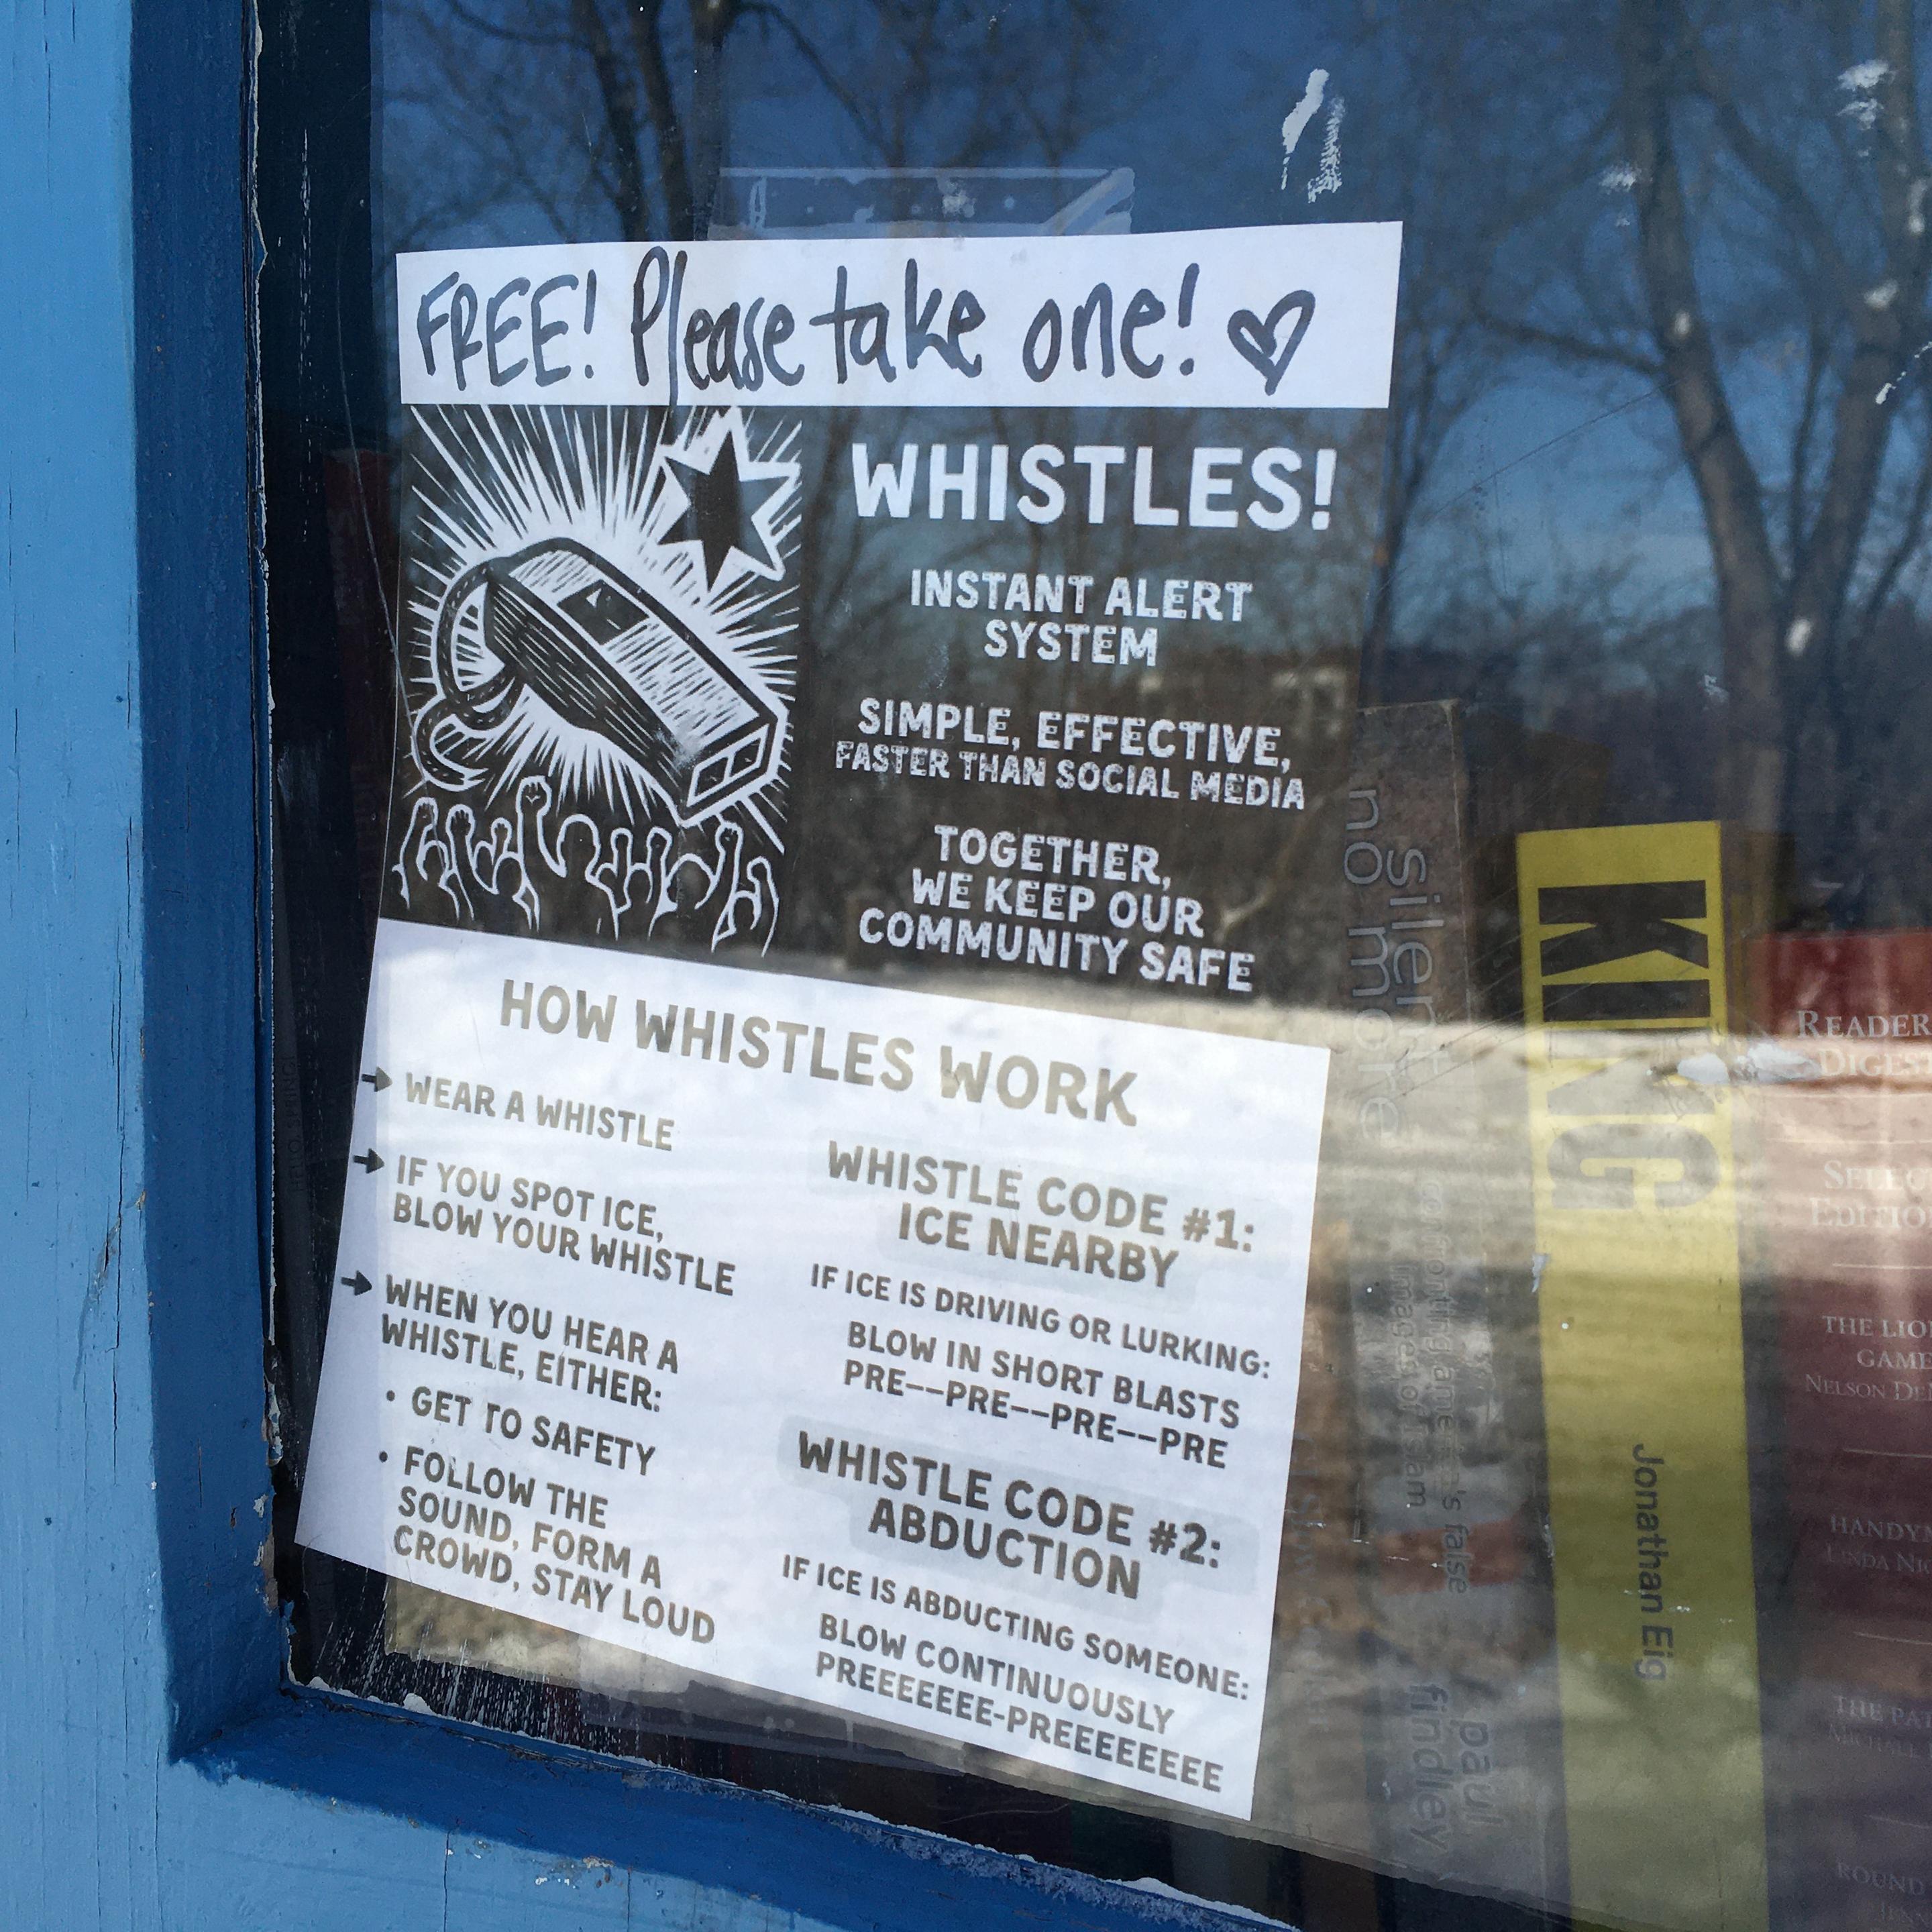 FREE! Please take one! ♡
WHISTLES!
INSTANT ALERT
SYSTEM
SIMPLE, EFFECTIVE,
FASTER THAN SOCIAL MEDIA
TOGETHER,
WE KEEP OUR
COMMUNITY SAFE
HOW WHISTLES WORK
→ WEAR A WHISTLE
→ IF YOU SPOT ICE,
BLOW YOUR WHISTLE
→ WHEN YOU HEAR A
WHISTLE, EITHER:
• GET TO SAFETY
• FOLLOW THE
SOUND, FORM A
CROWD, STAY LOUD
WHISTLE CODE #1:
ICE NEARBY
IF ICE IS DRIVING OR LURKING:
BLOW IN SHORT BLASTS
PRE--PRE--PRE--PRE
WHISTLE CODE #2:
ABDUCTION
IF ICE IS ABDUCTING SOMEONE:
BLOW CONTINUOUSLY
PREEEEEEE-PREEEEEEEE
silent
no more
confronting america's false
images of islam
paul
findley
KING
Jonathan Eig
READER
DIGEST
SELEC
EDITIO
THE LIO
GAME
NELSON DE
HANDY
LINDA NI
THE PA
MICHAEL
ROUND